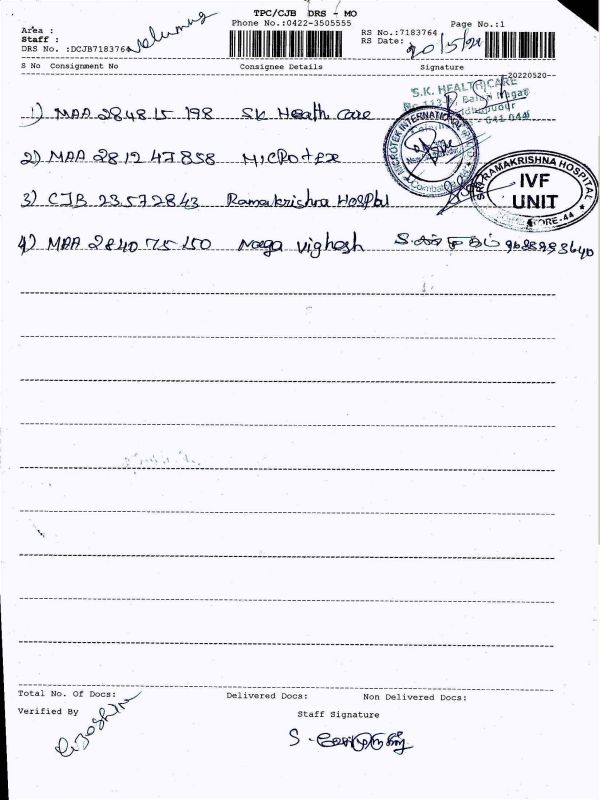 TPC/CJB DRS - MO
Area :
Phone No.:0422-3505555
Page No.:1
Staff :
RS No.:7183764
DRS No. :DCJB7183764
RS Date:
20/5/22
S No Consignment No
Consignee Details
Signature
20220520--
1) MAA 284815 198 SK Health Care
S.K. HEALTH CARE
2) MAA 281247858 MICROTEX
MICROTEK INTERNATIONAL
Coimbatore
3) CJB 23572843 Ramakrishna Hospital
SRI RAMAKRISHNA HOSPITAL
IVF
UNIT
4) MAA 284075150 Naga Vighesh
Total No. Of Docs:
Delivered Docs:
Non Delivered Docs:
Verified By
Staff Signature